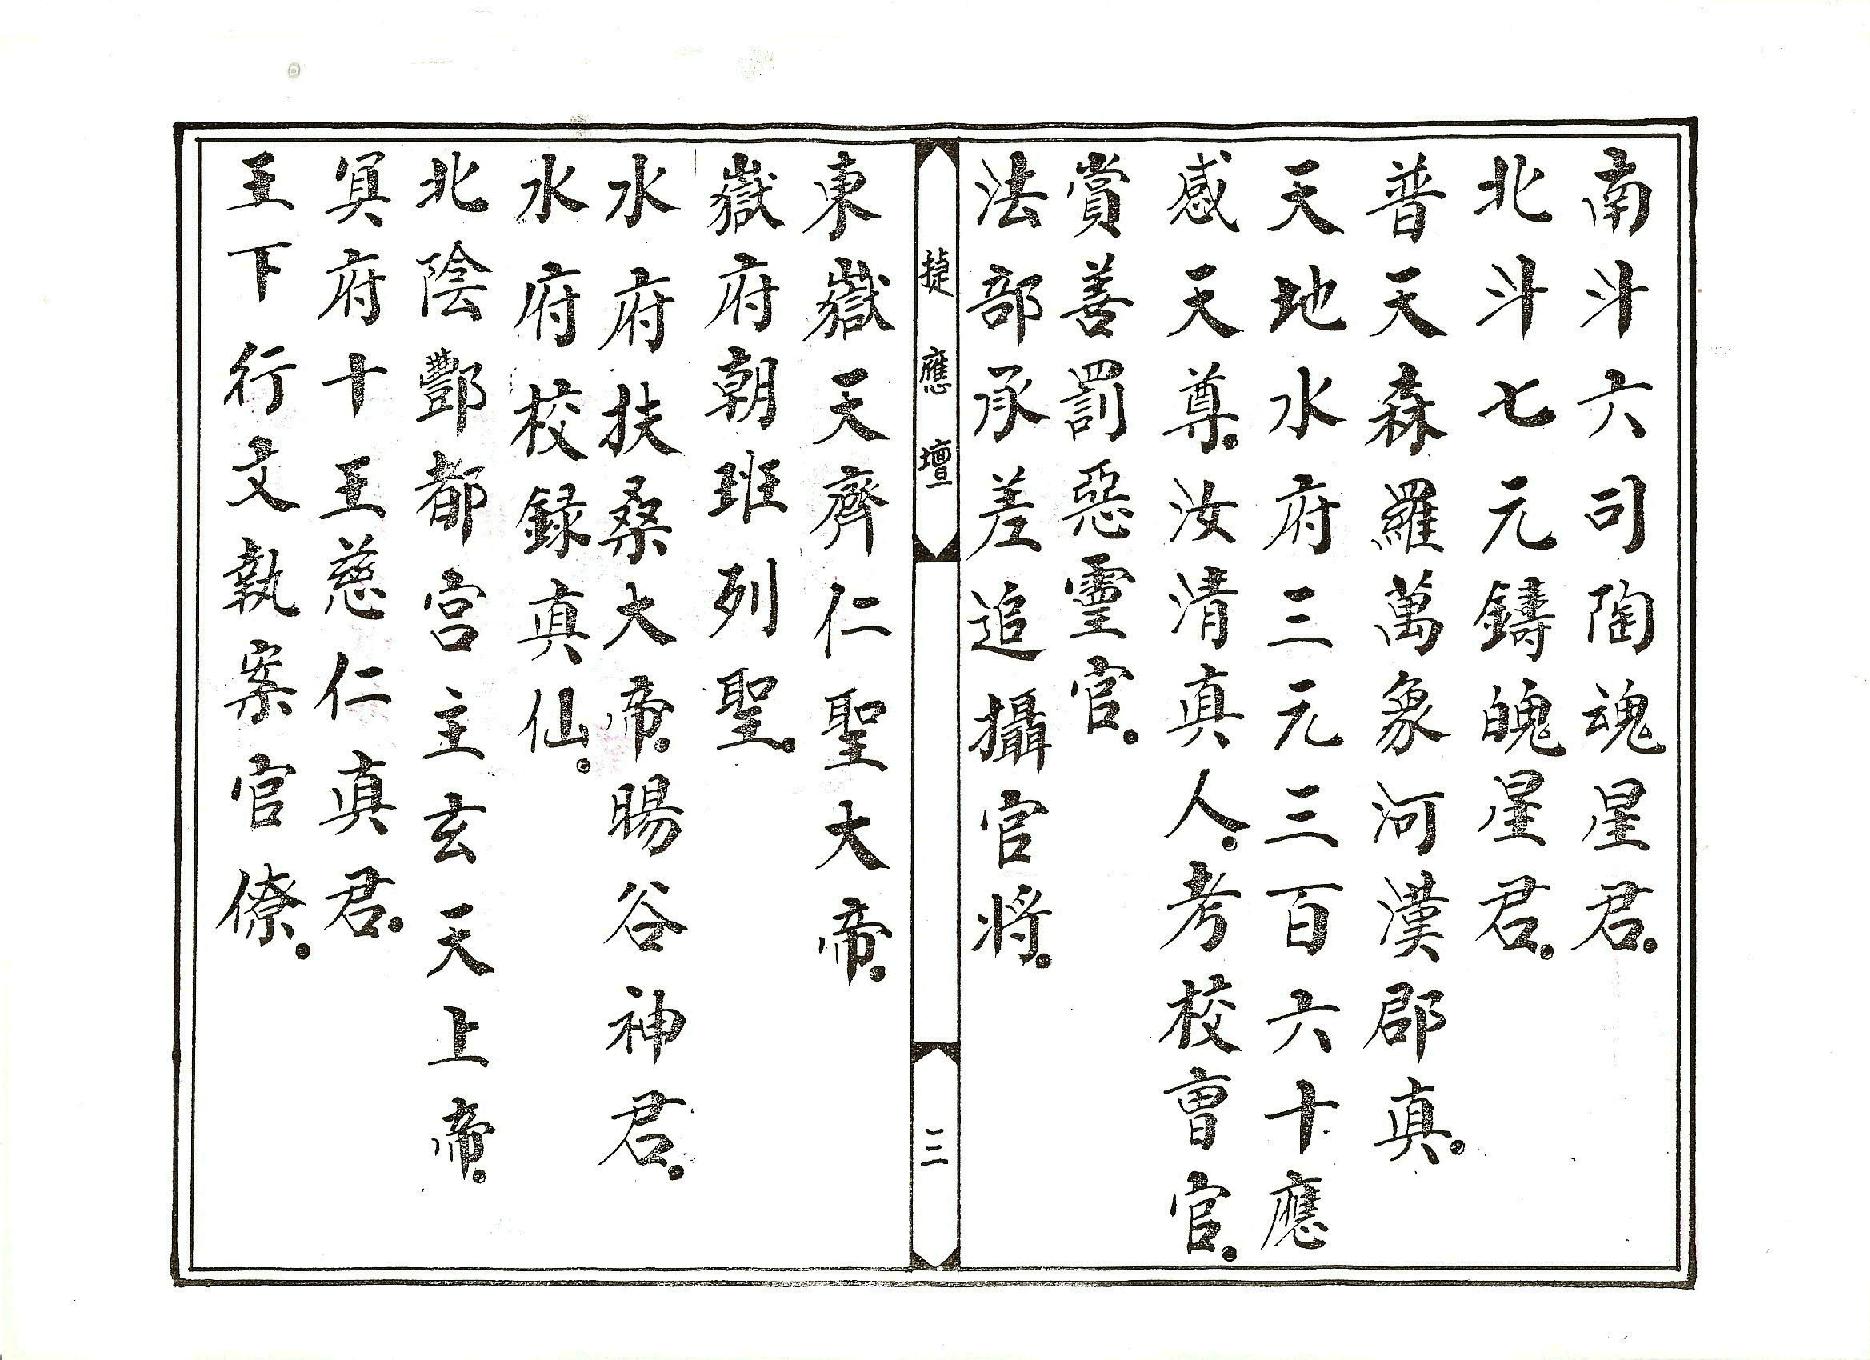 南斗六司陶魂星君。
北斗七元鑄魄星君。
普天森羅萬象河漢郡真。
天地水府三元三百六十應
感天尊。汝清真人。考校曹官。
賞善罰惡霊官。
法部承差追攝官將。
捷應壇
三
東嶽天齊仁聖大帝。
嶽府朝班列聖。
水府扶桑大帝。暘谷神君。
水府校録真仙。
北陰酆都宫主玄天上帝。
冥府十王慈仁真君。
王下行文執案官僚。